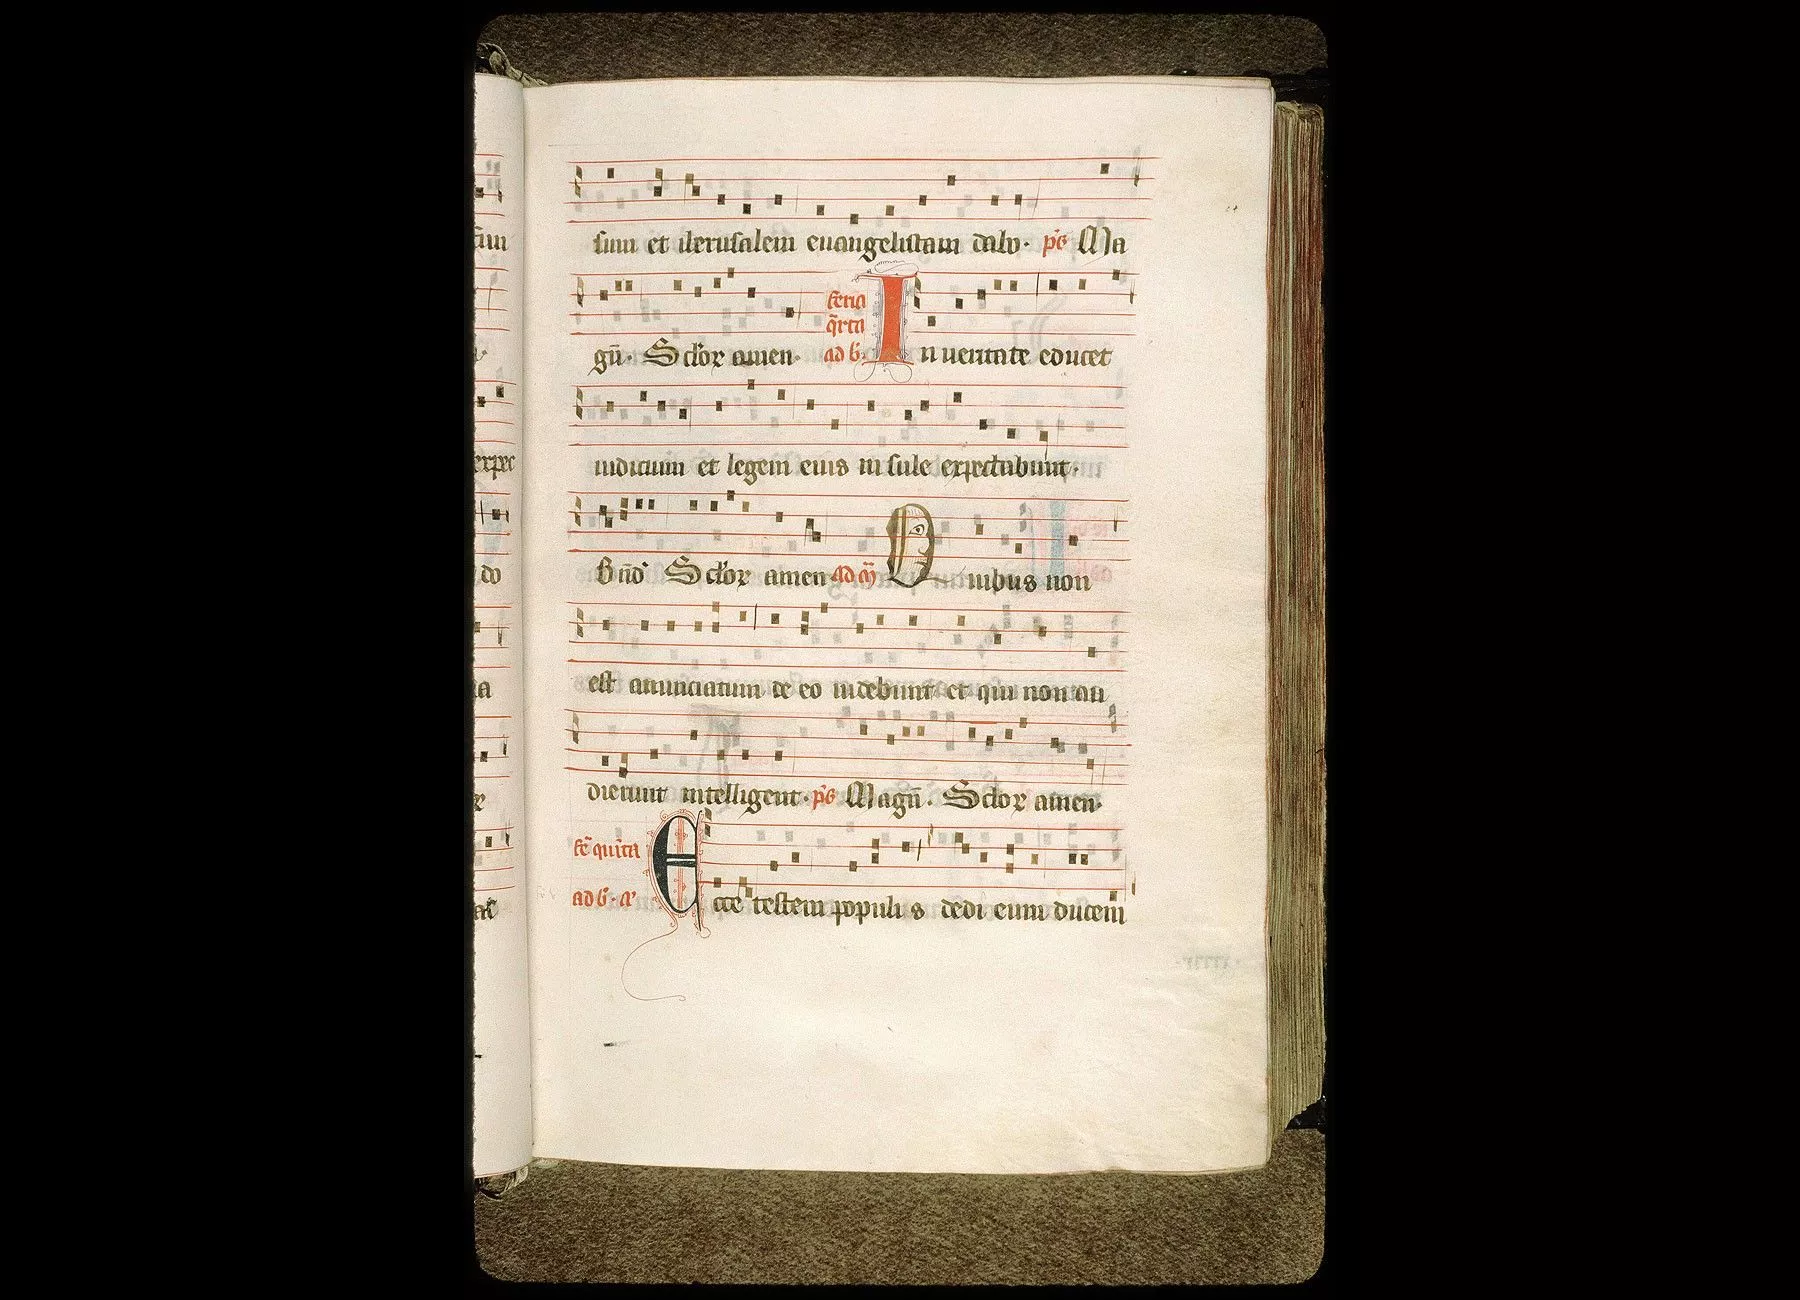 sum et iherusalem euangelistam dabo. ps Ma
gn. Sclor amen. feria qrta ad b. In ueritate educet
iudicium et legem eius insule expectabunt.
Bnds Sclor amen ad m Quibus non
est anunciatum de eo uidebunt et qui non au
dierunt intelligent. ps Magn. Sclor amen.
fe quinta ad b. a. Ecce testem populis dedi eum ducem